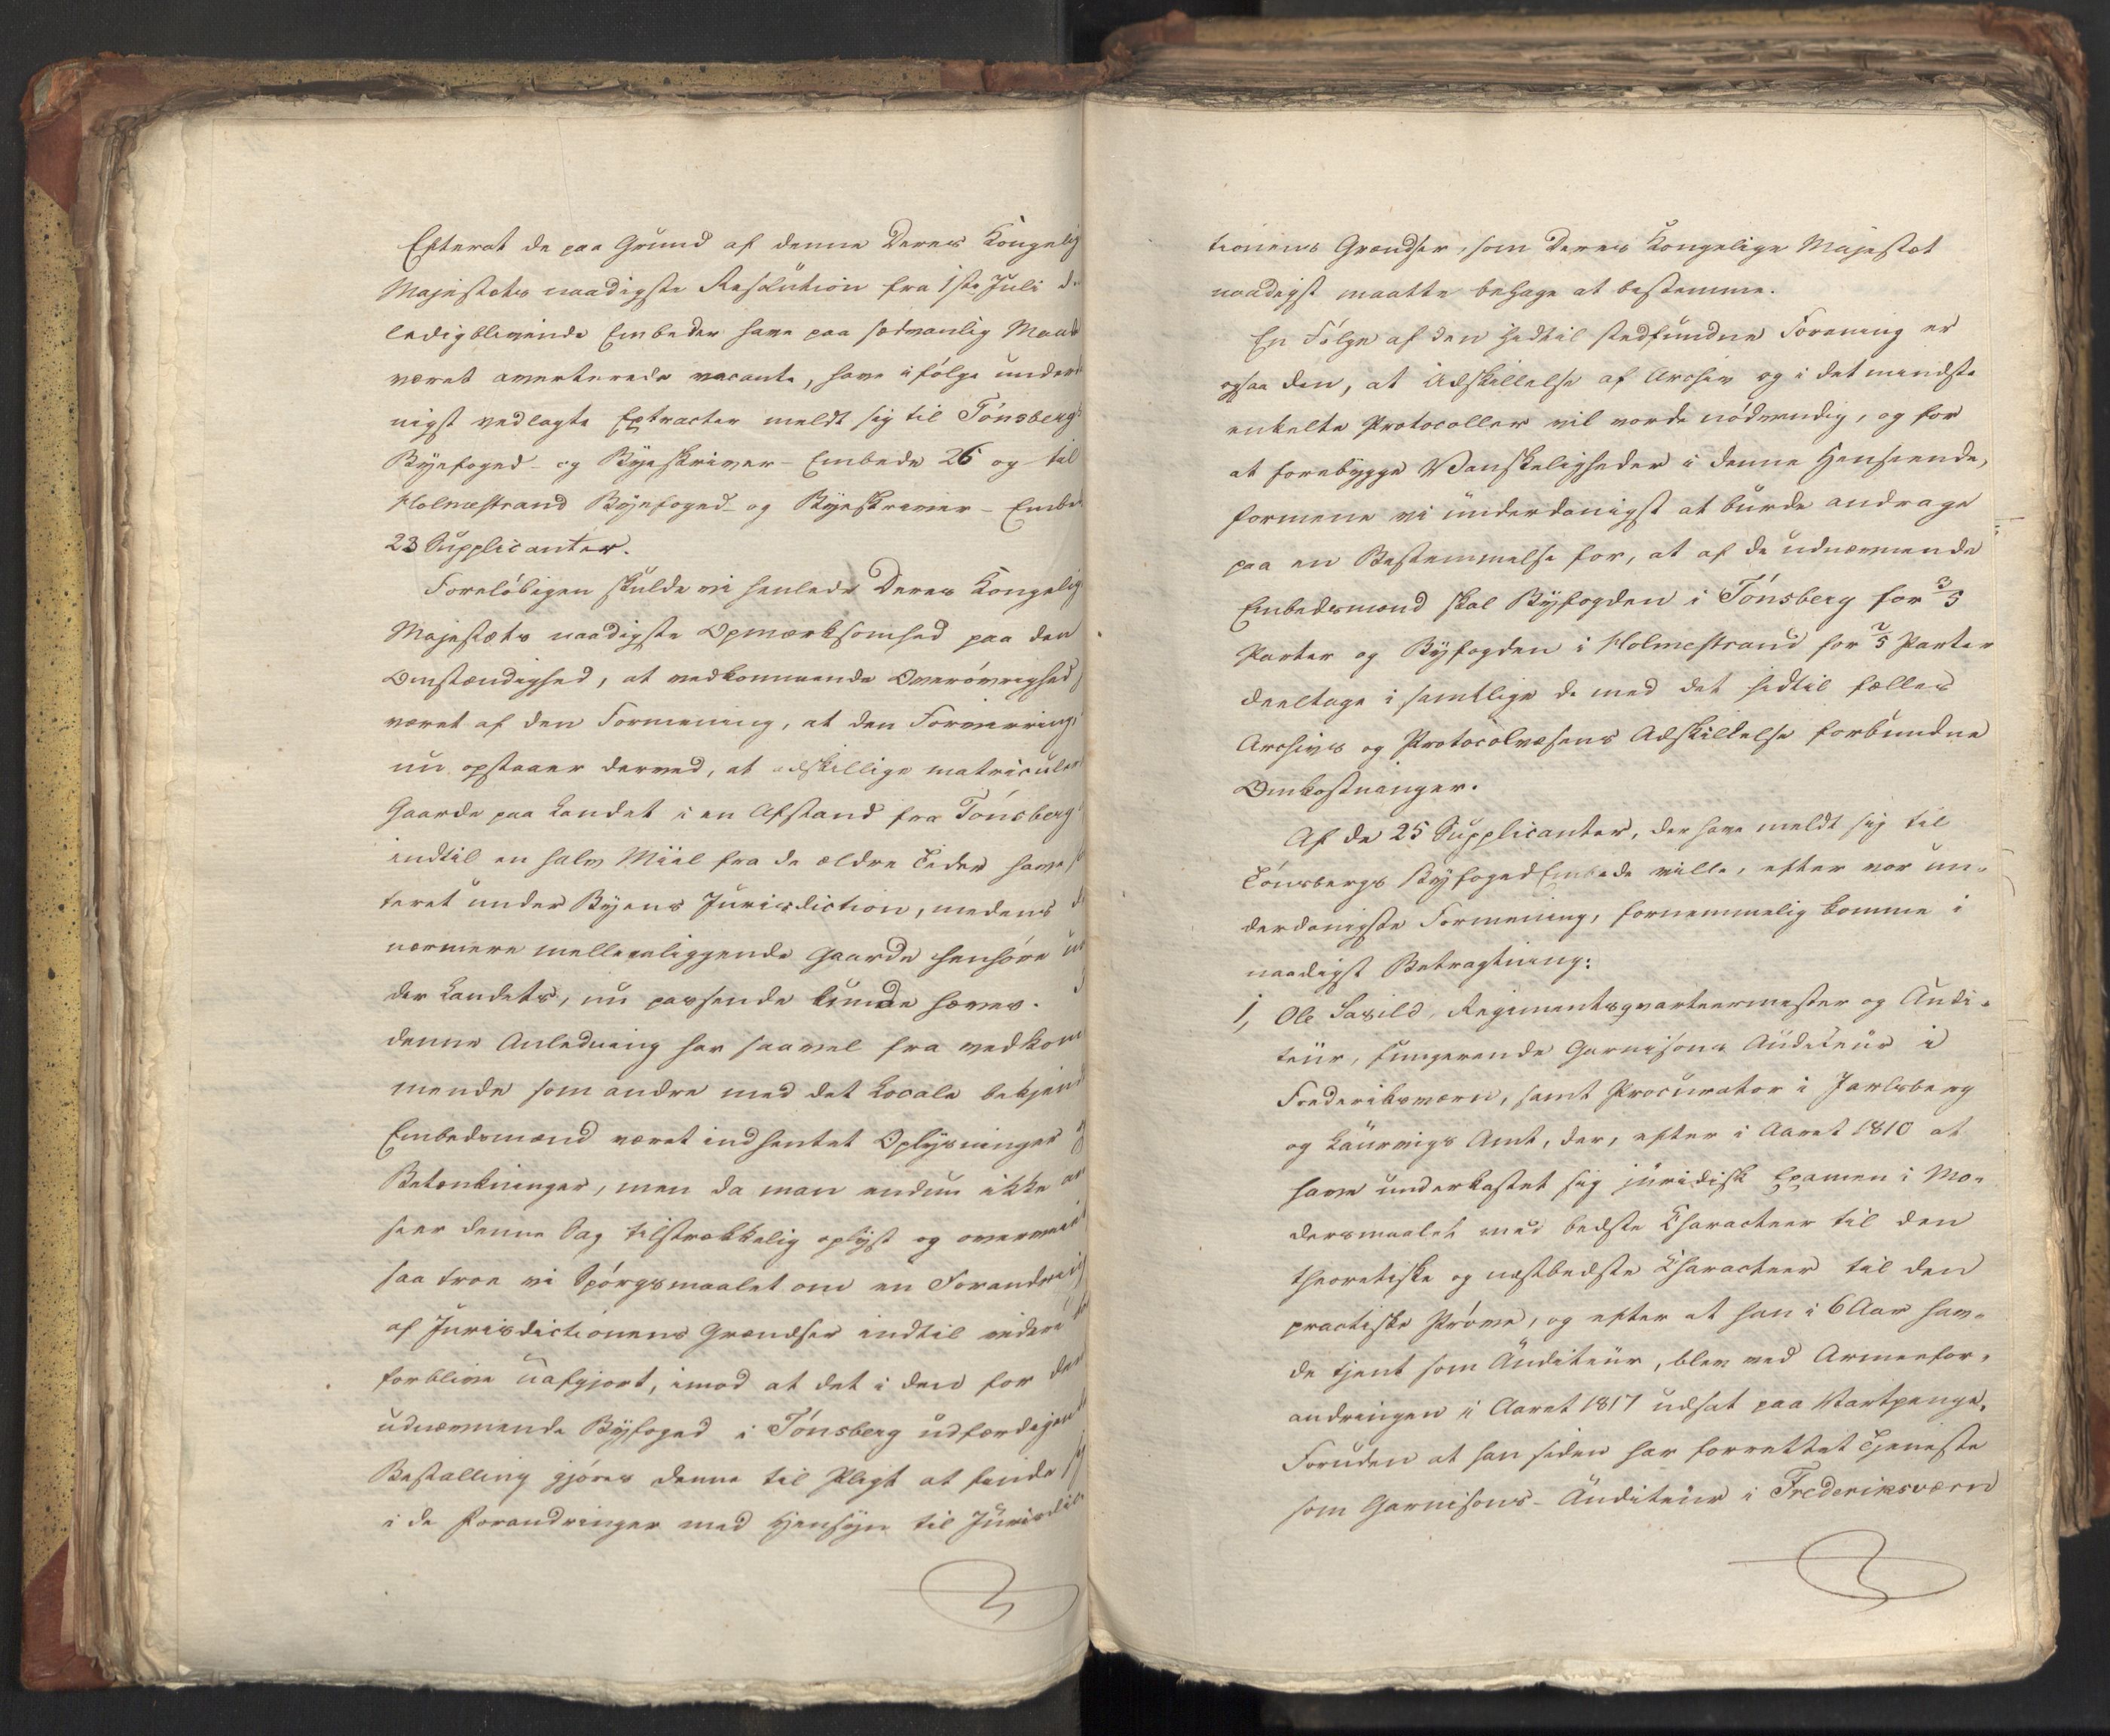 Efterat de paa Grund af denne Deres Kongelig
Majestæts naadigste Resolution fra 1ste Juli d.
ledigblevende Embeder have paa sædvanlig Maade
været averterede vacante, have ifølge underd
nigst vedlagte Extracter meldt sig til Tönsbergs
Byefoged- og Byeskriver-Embede 26 og til
Holmestrand Byefoged- og Byeskriver-Embe
23 Supplicanter.
Foreløbigen skulde vi henlede Deres Kongelig
Majestæts naadigste Opmærksomhed paa den
Omstændighed, at vedkommende Overøvrighed
været af den Formening, at den Forvirring,
nu opstaaer derved, at adskillige matriculer
Gaarde paa Landet i en Afstand fra Tönsberg
indtil en halv Miil fra de ældre Tider have so
teret under Byens Jurisdiction, medens de
nærmere mellemliggende Gaarde henhøre un
der Landets, nu passende kunde hæves. I
denne Anledning har saavel fra vedkom
mende som andre med det Locale bekjend
Embedsmænd været indhentet Oplysninger og
Betænkninger, men da man endnu ikke an
seer denne Sag tilstrækkelig oplyst og overveiet
saa troe vi Spørgsmaalet om en Forandring
af Jurisdictionens Grændser indtil videre
forblive uafgjort, imod at det i den for den
udnævnende Byfoged i Tönsberg udfærdigende
Bestalling gjøres denne til Pligt at finde sig
i de Forandringer med Hensyn til Jurisdic
tionens Grændser, som Deres Kongelige Majestæt
naadigst maatte behage at bestemme.
En Følge af den hidtil stedfundne Forening er
ogsaa den, at Adskillelse af Archiv og i det mindste
enkelte Protocoller vil vorde nödvendig, og for
at forebygge Vanskeligheder i denne Henseende,
formene vi underdanigst at burde andrage
paa en Bestemmelse for, at af de udnævnende
Embedsmænd skal Byfogden i Tönsberg for 3/5
Parter og Byfogden i Holmestrand for 2/5 Parter
deeltage i samtlige de med det hidtil fælles
Archivs og Protocolvæsens Adskillelse forbundne
Omkostninger.
Af de 25 Supplicanter, der have meldt sig til
Tönsbergs Byfoged Embede ville, efter vor un-
derdanigste Formening, fornemmelig komme i
naadigst Betragtning:
1, Ole Savild, Regimentsqvarteermester og Audi-
teur, fungerende Garnisons Auditeur i
Frederiksværn, samt Procurator i Jarlsberg
og Laurvigs Amt, der, efter i Aaret 1810 at
have underkastet sig juridisk Examen i Mo-
dersmaalet med bedste Characteer til den
theoretiske og næstbedste Characteer til den
practiske Prøve, og efter at han i 6 Aar hav-
de tjent som Auditeur, blev ved Armeefor-
andringen i Aaret 1817 udsat paa Vartpenge.
Foruden at han siden har forrettet Tjeneste
som Garnisons-Auditeur i Frederiksværn